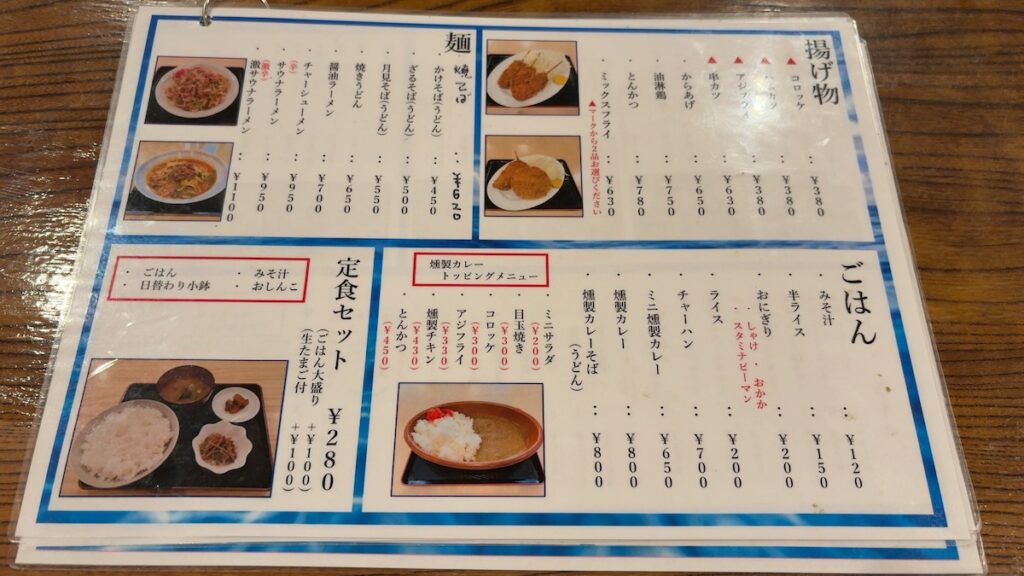 揚げ物
▲コロッケ : ¥380
▲ : ¥380
▲アジフライ : ¥380
▲串カツ : ¥630
・からあげ : ¥650
・油淋鶏 : ¥750
・とんかつ : ¥780
・ミックスフライ : ¥630
▲マークから2品お選びください
麺
・焼そば : ¥
・かけそば(うどん) : ¥450
・ざるそば(うどん) : ¥500
・月見そば(うどん) : ¥550
・焼きうどん : ¥650
・醤油ラーメン : ¥700
・チャーシューメン : ¥950
・サウナラーメン(辛) : ¥950
・激サウナラーメン(激辛) : ¥1100
ごはん
・みそ汁 : ¥120
・半ライス : ¥150
・おにぎり : ¥200
・しゃけ ・おかか
・スタミナピーマン
・ライス : ¥200
・チャーハン : ¥700
・ミニ燻製カレー : ¥650
・燻製カレー : ¥800
・燻製カレーそば(うどん) : ¥800
燻製カレー
トッピングメニュー
・ミニサラダ(¥200)
・目玉焼き(¥300)
・コロッケ(¥300)
・アジフライ(¥330)
・燻製チキン(¥430)
・とんかつ(¥450)
定食セット ¥280
(ごはん大盛り +¥100)
(生たまご付 +¥100)
・ごはん ・みそ汁
・日替わり小鉢 ・おしんこ